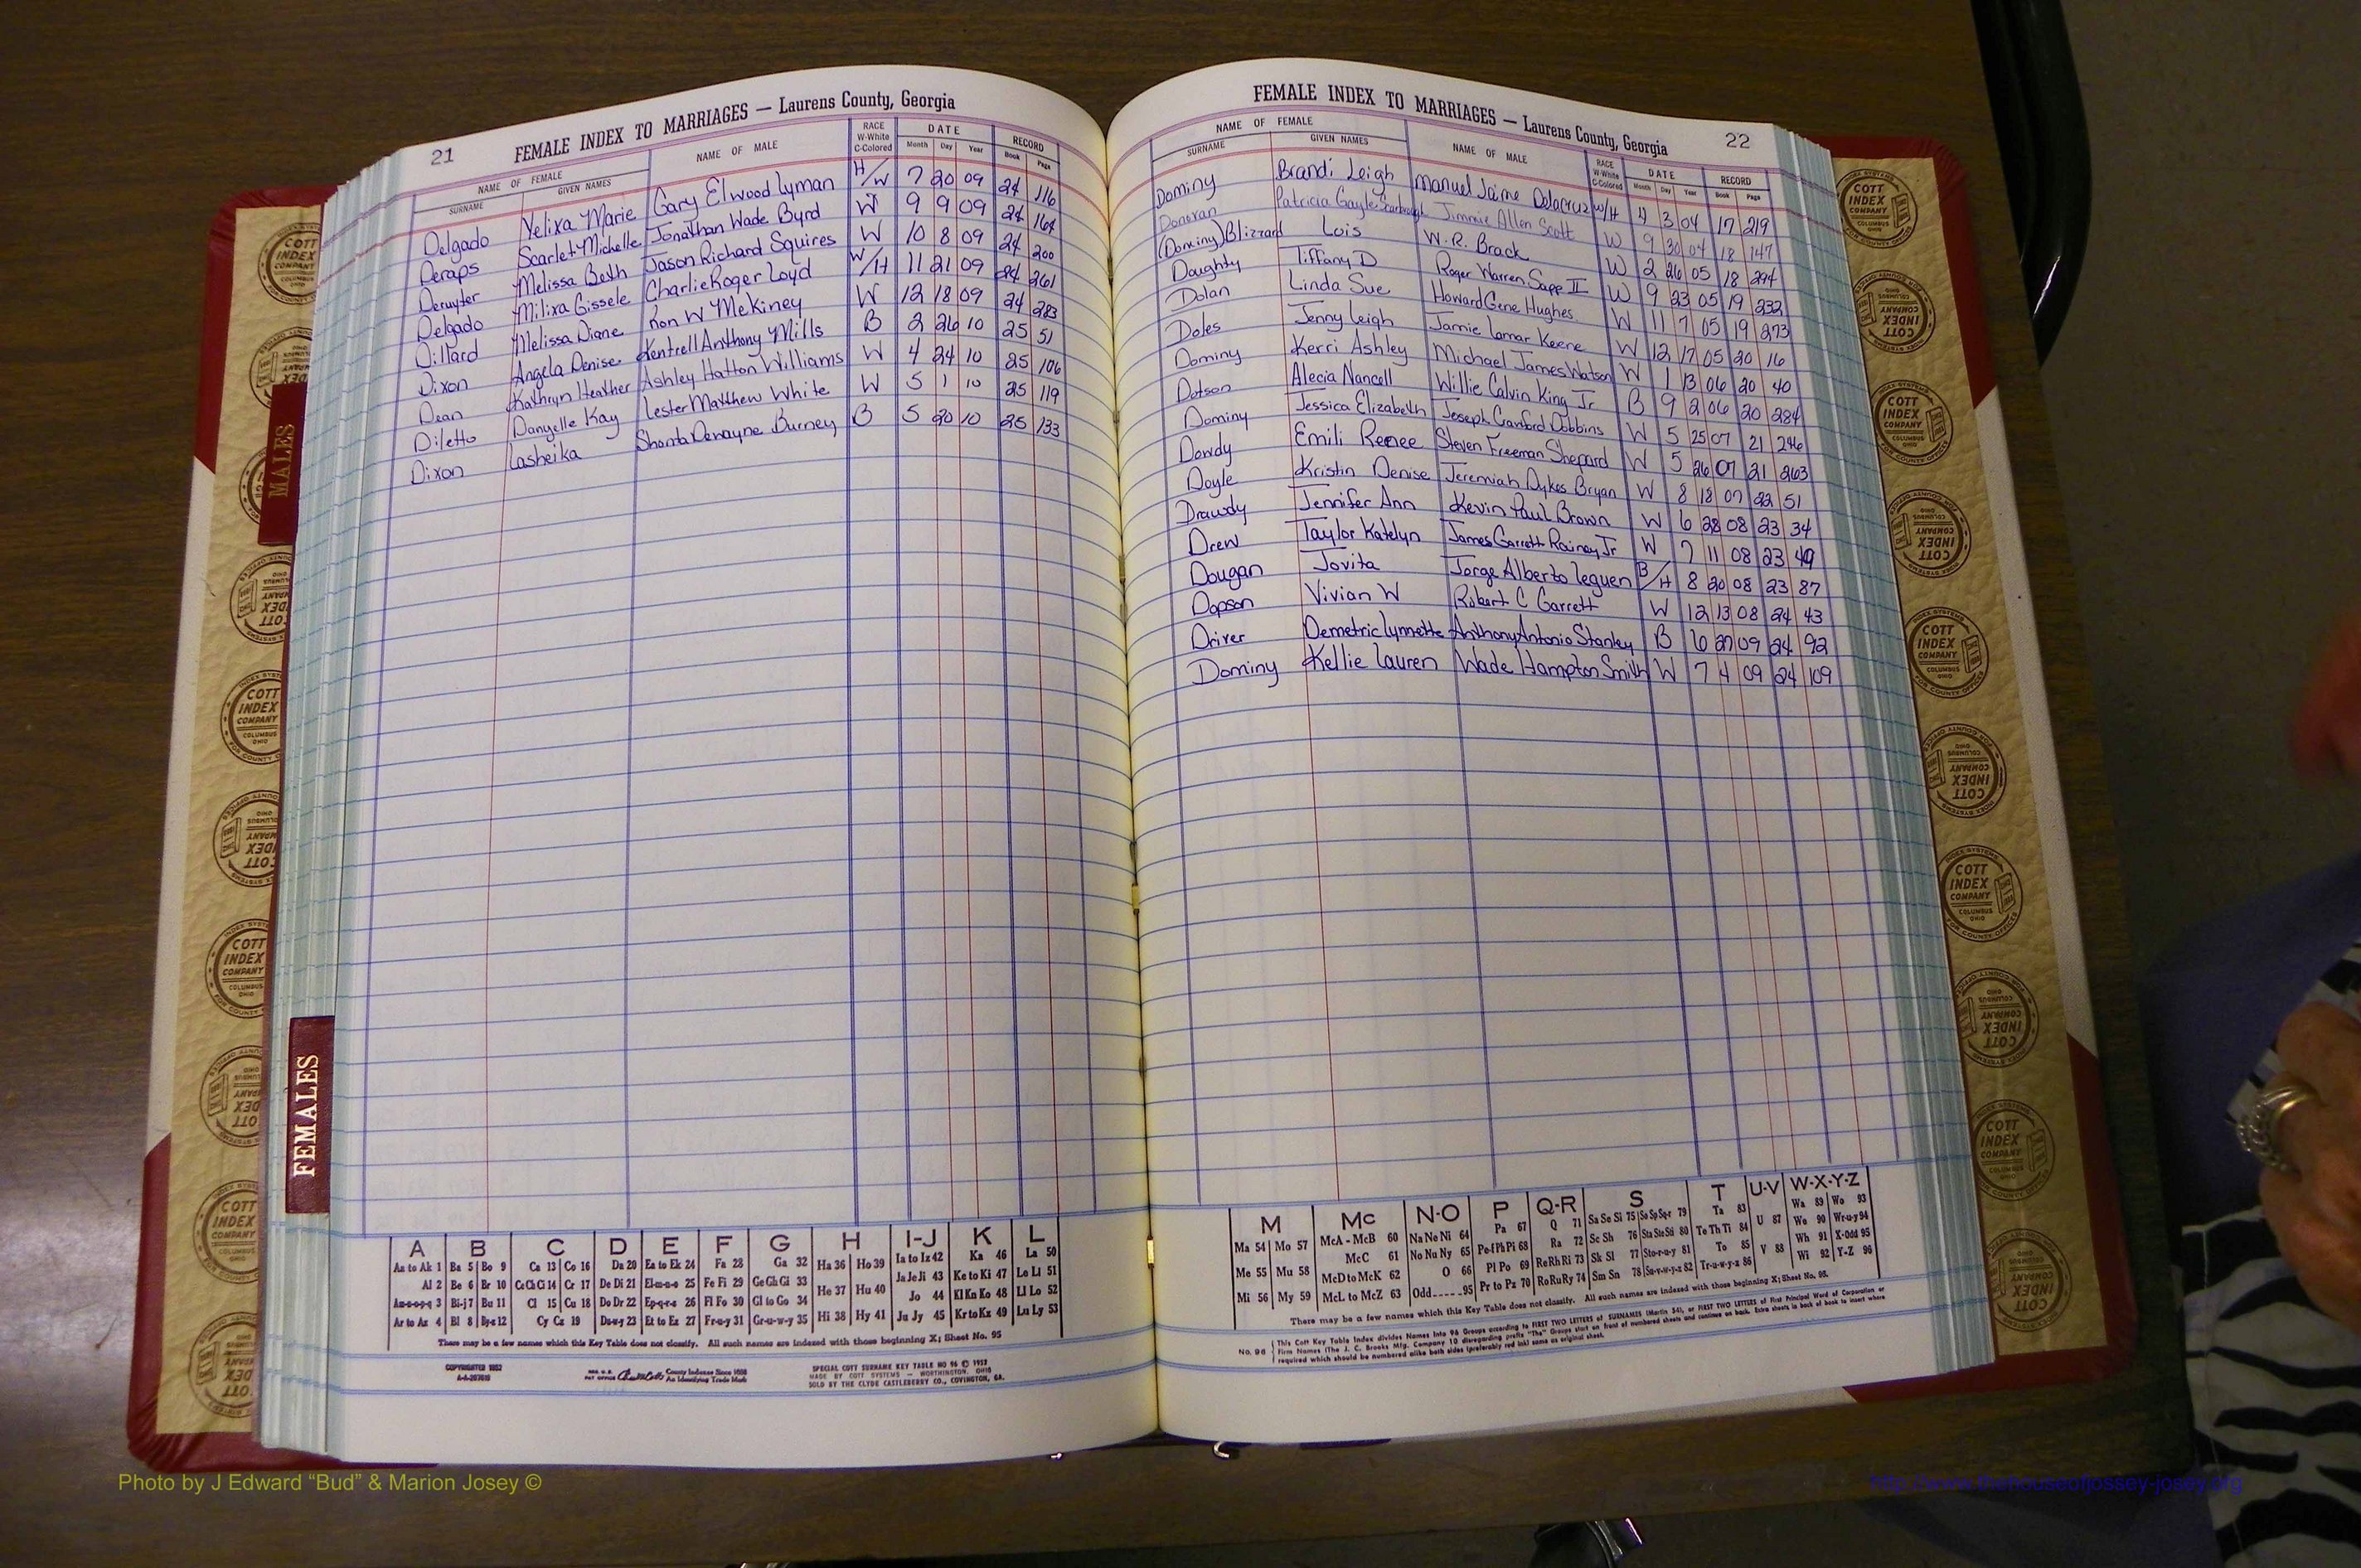 21 FEMALE INDEX TO MARRIAGES — Laurens County, Georgia
NAME OF FEMALE NAME OF MALE RACE W-White C-Colored DATE RECORD
SURNAME GIVEN NAMES Month Day Year Book Page
Delgado Yelixa Marie Gary Elwood Lyman H/W 7 20 09 24 116
Deraps Scarlet Michelle Jonathan Wade Byrd W 9 9 09 24 164
Deruyter Melissa Beth Jason Richard Squires W 10 8 09 24 200
Delgado Milixa Gissele Charlie Roger Loyd W/H 11 21 09 24 261
Dillard Melissa Diane Ron W McKiney W 12 18 09 24 283
Dixon Angela Denise Kentrell Anthony Mills B 2 26 10 25 51
Dean Kathryn Heather Ashley Hatton Williams W 4 24 10 25 106
Diletto Danyelle Kay Lester Matthew White W 5 1 10 25 119
Dixon Lasheika Shonta Dewayne Burney B 5 20 10 25 133
A B C D E F G H I-J K L
Aa to Ak 1 Ba 5 Bo 9 Ca 13 Co 16 Da 20 Ea to Ek 24 Fa 28 Ga 32 Ha 36 Ho 39 Ia to Iz 42 Ka 46 La 50
Al 2 Be 6 Br 10 Ce Ch Ci 14 Cr 17 De Di 21 El-m-n-o 25 Fe Fi 29 Ge Gh Gi 33 He 37 Hu 40 Ja Je Ji 43 Ke to Ki 47 Le Li 51
Am-n-o-p-q 3 Bi-j 7 Bu 11 Cl 15 Cu 18 Do Dr 22 Ep-q-r-s 26 Fl Fo 30 Gl to Go 34 Jo 44 Kl Kn Ko 48 Ll Lo 52
Ar to Az 4 Bl 8 By-z 12 Cy Cz 19 Du-w-y 23 Et to Ez 27 Fr-u-y 31 Gr-u-w-y 35 Hi 38 Hy 41 Ju Jy 45 Kr to Kz 49 Lu Ly 53
There may be a few names which this Key Table does not classify. All such names are indexed with those beginning X; Sheet No. 95
COPYRIGHTED 1953
County Indexes Since 1888
An Identifying Trade Mark
SPECIAL COTT SURNAME KEY TABLE NO 96 © 1957
MADE BY COTT SYSTEMS — WORTHINGTON, OHIO
SOLD BY THE CLYDE CASTLEBERRY CO., COVINGTON, GA.
FEMALE INDEX TO MARRIAGES — Laurens County, Georgia 22
NAME OF FEMALE NAME OF MALE RACE W-White C-Colored DATE RECORD
SURNAME GIVEN NAMES Month Day Year Book Page
Dominy Brandi Leigh Manuel Jaime Delacruz W/H 4 3 04 17 219
Donovan Patricia Gayle Scarborough Jimmie Allen Scott W 9 30 04 18 147
(Dominy) Blizzard Lois W. R. Brack W 2 26 05 18 294
Doughty Tiffany D Roger Warren Sapp II W 9 23 05 19 232
Dolan Linda Sue Howard Gene Hughes W 11 7 05 19 273
Doles Jenny Leigh Jamie Lamar Keene W 12 17 05 20 16
Dominy Kerri Ashley Michael James Watson W 1 13 06 20 40
Dotson Alecia Nancell Willie Calvin King Jr B 9 2 06 20 284
Dominy Jessica Elizabeth Joseph Canford Dobbins W 5 25 07 21 246
Dowdy Emili Renee Steven Freeman Shepard W 5 26 07 21 263
Doyle Kristin Denise Jeremiah Dykes Bryan W 8 18 07 22 51
Drawdy Jennifer Ann Kevin Paul Brown W 6 28 08 23 34
Drew Taylor Katelyn James Garrett Rainey Jr W 7 11 08 23 49
Dougan Jovita Jorge Alberto Leguen B/H 8 20 08 23 87
Dopson Vivian W Robert C Garrett W 12 13 08 24 43
Driver Demetric Lynnette Anthony Antonio Stanley B 6 27 09 24 92
Dominy Kellie Lauren Wade Hampton Smith W 7 4 09 24 109
M Mc N-O P Q-R S T U-V W-X-Y-Z
Ma 54 Mo 57 McA - McB 60 Na Ne Ni 64 Pa 67 Q 71 Sa Se Si 75 So Sp Sq-r 79 Ta 83 Wa 89 Wo 93
Me 55 Mu 58 McC 61 No Nu Ny 65 Pe-f Ph Pi 68 Ra 72 Sc Sh 76 Sta Ste Sti 80 Te Th Ti 84 U 87 We 90 Wr-u-y 94
McD to McK 62 O 66 Pl Po 69 Re Rh Ri 73 Sk Sl 77 Sto-r-u-y 81 To 85 Wh 91 X-odd 95
Mi 56 My 59 McL to McZ 63 Odd 95 Pr to Pz 70 Ro Ru Ry 74 Sm Sn 78 Su-v-w-y-z 82 Tr-u-w-y-z 86 V 88 Wi 92 Y-Z 96
There may be a few names which this Key Table does not classify. All such names are indexed with those beginning X; Sheet No. 95.
No. 96 This Cott Key Table Index divides Names into 96 Groups according to FIRST TWO LETTERS of SURNAMES (Martin 54), or FIRST TWO LETTERS of First Principal Word of Corporation or
Firm Names (The J. C. Brooks Mfg. Company 10 disregarding prefix "The") Groups start on front of numbered sheets and continue on back. Extra sheets in back of book to insert where
required which should be numbered alike both sides (preferably red ink) same as original sheet.
MALES
FEMALES
COTT INDEX COMPANY COLUMBUS OHIO
INDEX SYSTEMS FOR COUNTY OFFICES
Photo by J Edward “Bud” & Marion Josey ©
http://www.thehouseofjossey-josey.org